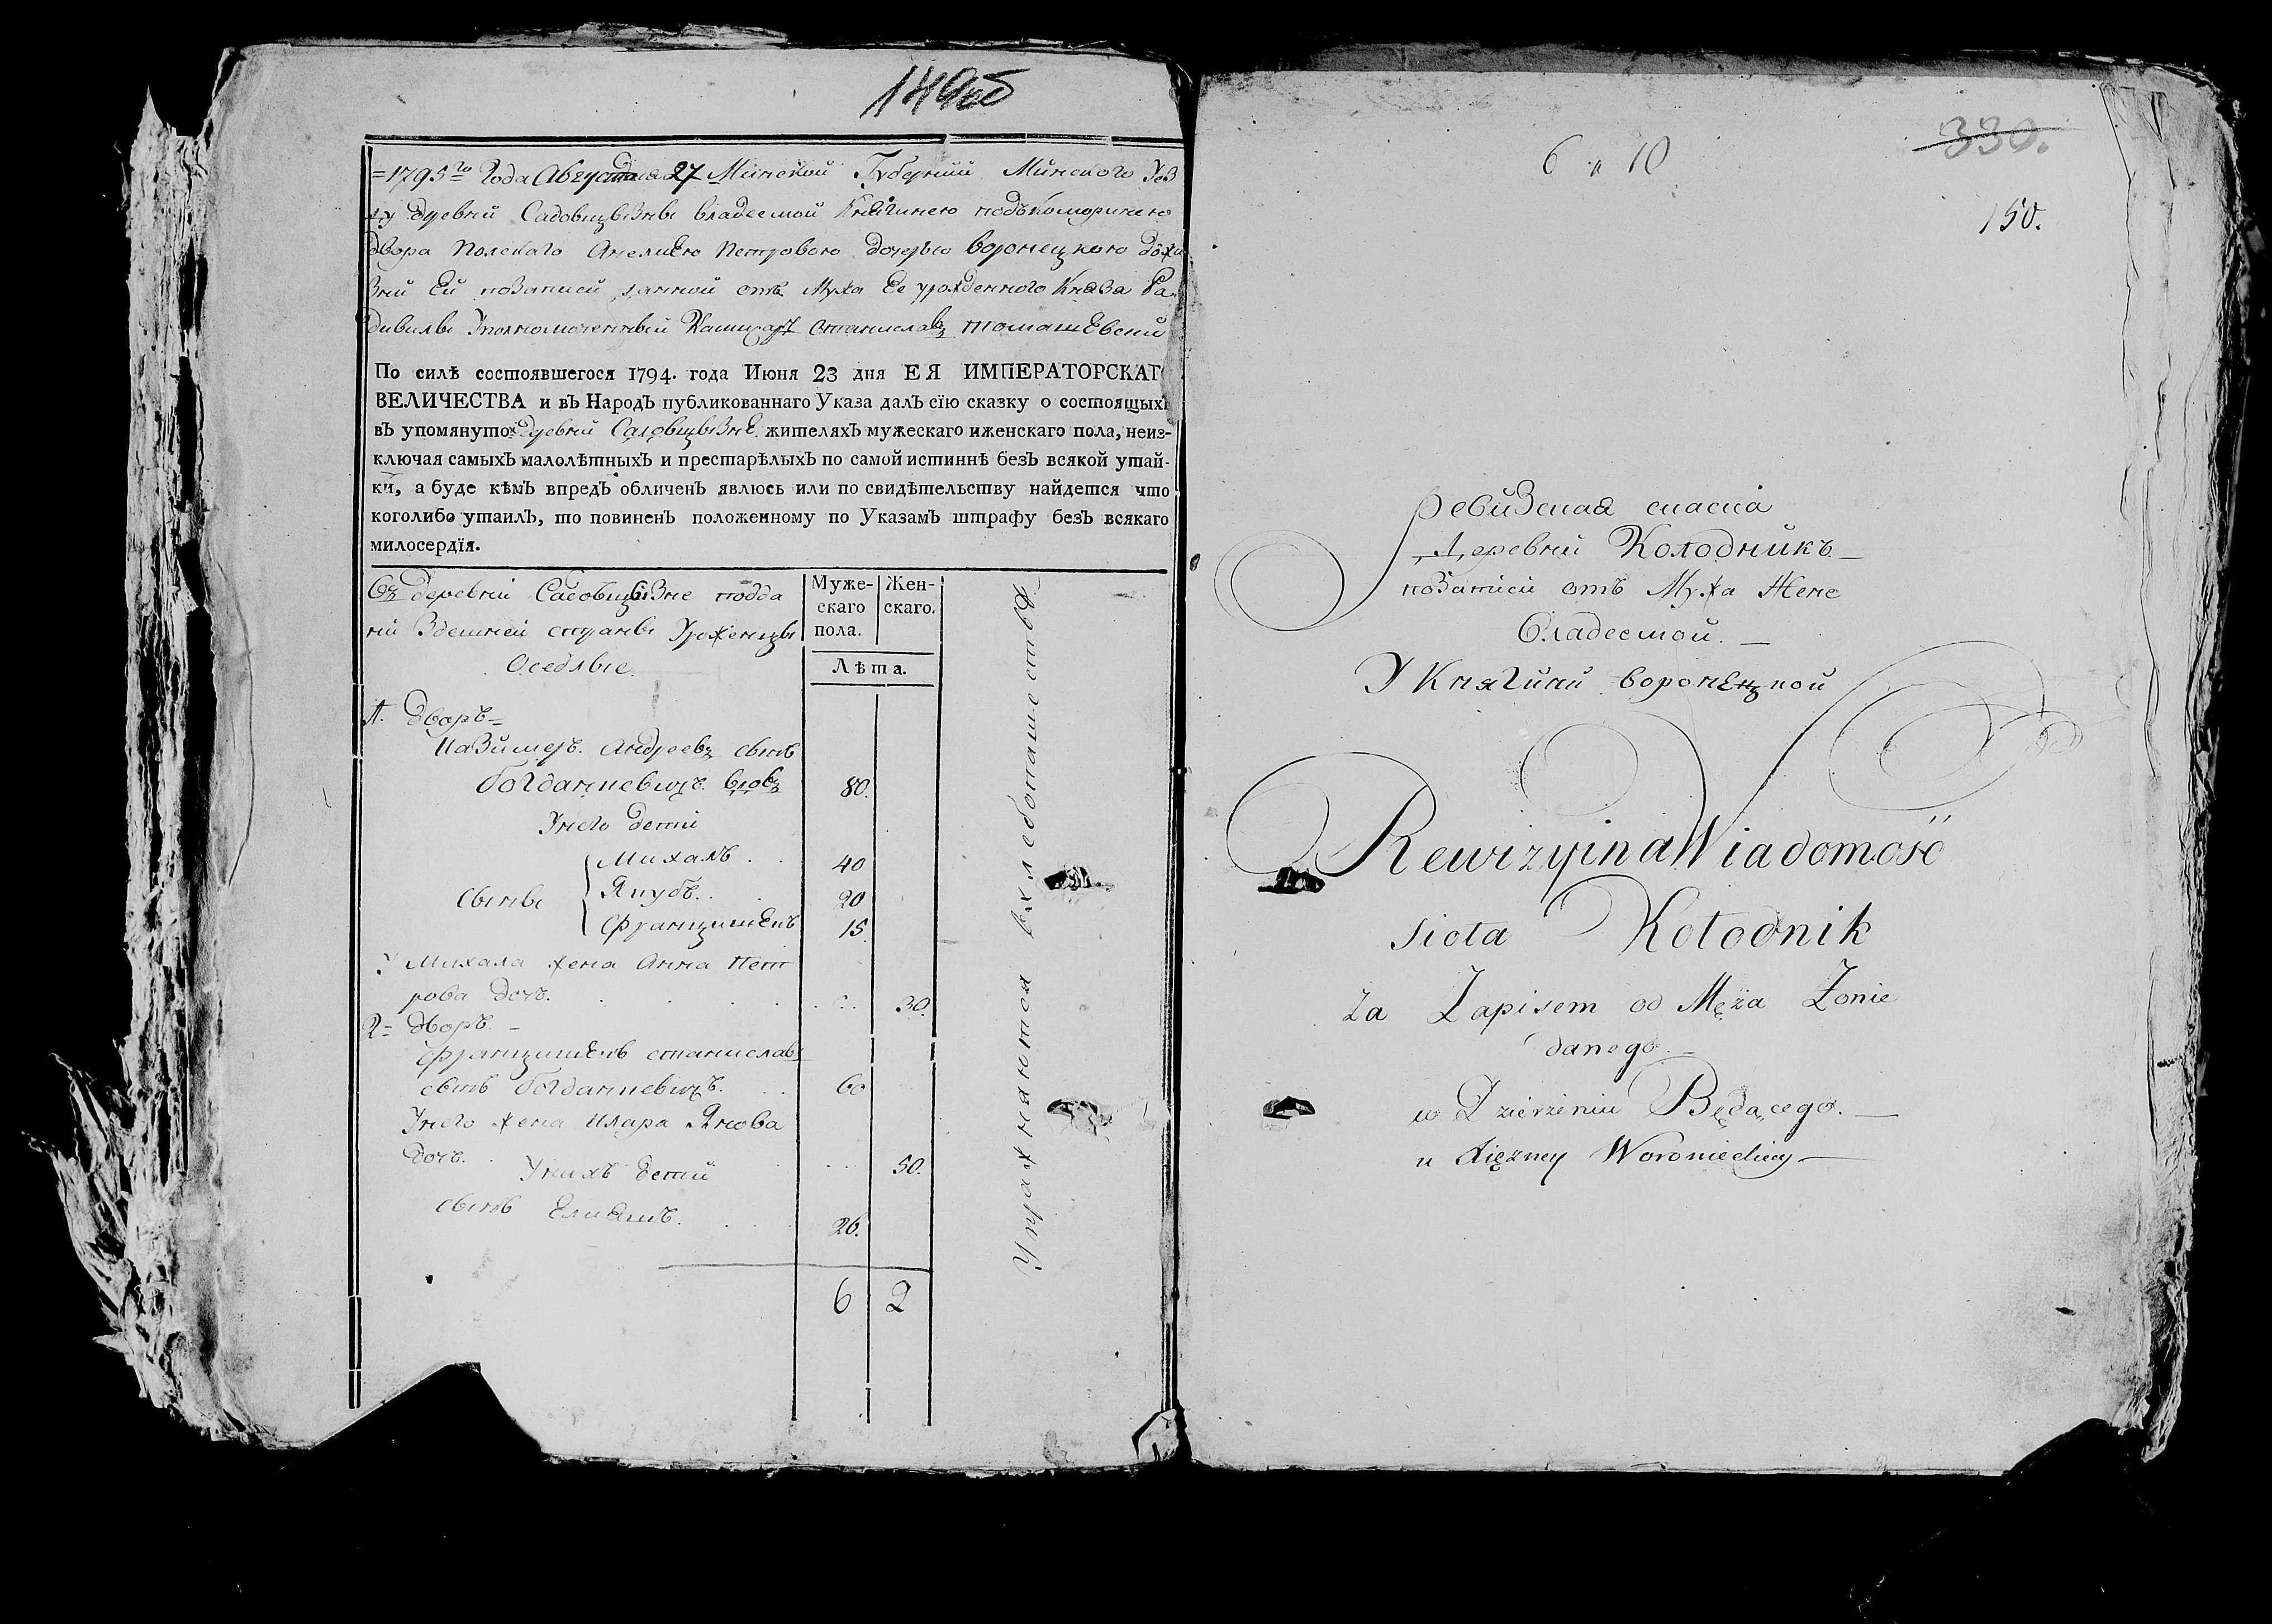 149об
=1795го Года Августа дня 27 Минской Губернии Минского Уез
ду деревни Садовщызны владеемой Княгинею подъкоморинею
двора Полскаго Анелиею Петровою дочерью воронецкою дожи
зни Ей позаписи данной отъ Мужа Ее урожденного Князя Ра
дивилы Уполномоченный станиславъ томашевски
По силѣ состоявшегося 1794. года Июня 23 дня ЕЯ ИМПЕРАТОРСКАГО
ВЕЛИЧЕСТВА и въ Народъ публикованнаго Указа далъ сїю сказку о состоящыхъ
въ упомянутой деревни Садовщызне жителяхъ мужескаго иженскаго пола, неиз-
ключая самыхъ малолѣтныхъ и престарѣлыхъ по самой истиннѣ безъ всякой утай-
ки, а буде кѣмъ впредъ обличенъ явлюсь или по свидѣтельству найдется что
коголибо утаилъ, то повиненъ положенному по Указамъ штрафу безъ всякаго
милосердїя.
Въ деревни Садовщызне подда
ни Здешней страны Уроженцы
Оседлые
Муже-
скаго
пола.
Жен-
скаго.
Лѣта.
1. дворъ=
Казимеръ Андреевъ сынъ
богданкевичъ вдовъ 80.
Унего дети
сыны
Михалъ . . 40
Якубъ . . 20
Францишекъ 15.
У Михала жена Анна Пет
рова дочь. . . . . 30.
2= дворъ. –
Францишекъ станиславъ
сынъ богданкевичъ. . . 60
Унего жена Клара Янова
дочь. . . . 50.
Унихъ дети
сынъ Елияшъ. . . . 26.
6 2
Упражняются вхлебопашестве
6 и 10
330.
150.
Ревизская скаска
Деревни Колодникъ –
позаписи отъ Мужа Жене
Владеемой. –
У Княгини воронецкой
Rewizyina Wiadomość
sioła Kołodnik
za Zapisem od Męża Żonie
danego –
w Dzierzeniu Będącego. —
u Xiężney Woronieckiey —